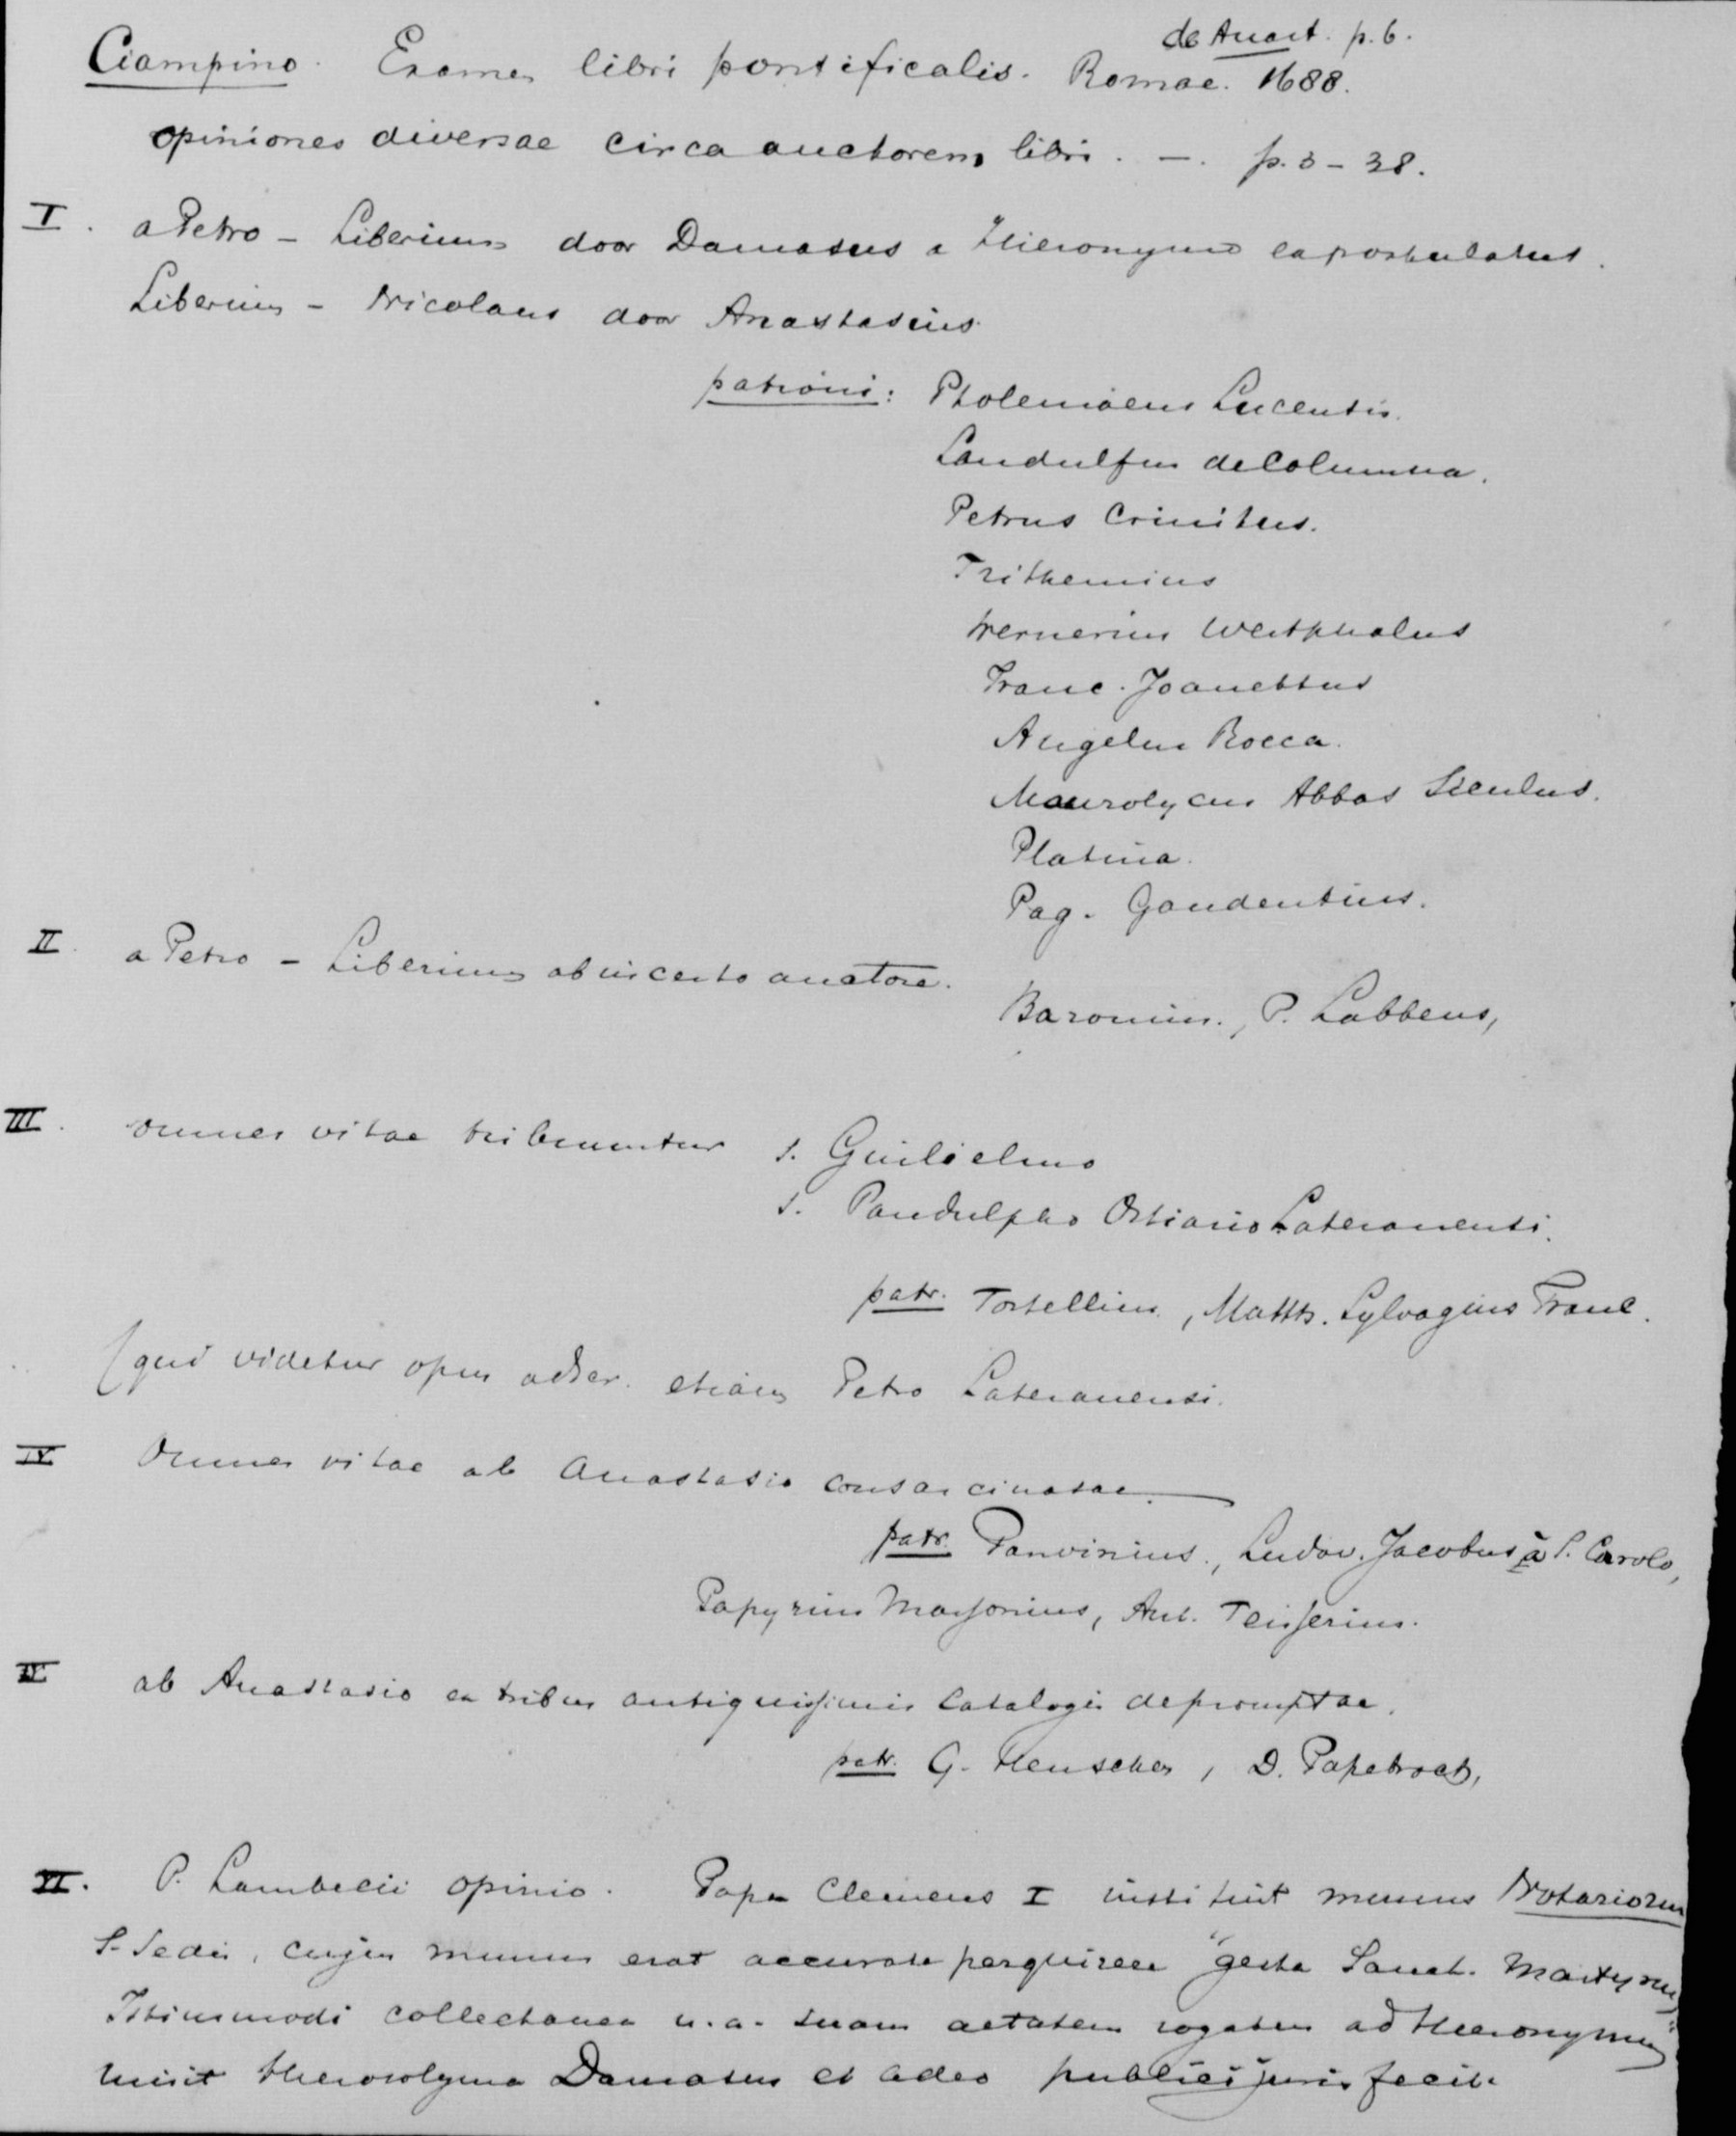 de Anast. p. 6.
Ciampino. Examen libri pontificalis. Romae. 1688.
opiniones diversae circa auctorem libri. —. p. 3 – 38.
I. a Petro – Liberium door Damasus a Hieronymo expostulatus.
Liberium – Nicolaus door Anastasius.
patroni: Ptolemaeus Lucentis.
Landulfus de Columna.
Petrus Crinitus.
Trithemius
Wernerius Westphalus
Franc. Joanettus
Angelus Rocca.
Maurolycus Abbas Siculus.
Platina.
Pag. Gaudentius.
II. a Petro – Liberium ab incerto auctore.
Baronius., P. Labbeus,
III. omnes vitae tribuuntur s. Guilielmo
s. Pandulpho Ostiario Lateranensi.
patr. Tortellius, Matth. Sylvagius Franc.
(qui videtur opus adscr. etiam Petro Lateranensi.
IV Omnes vitae ab Anastasio consarcinatae.
patr. Panvinius., Ludov. Jacobus à S. Carolo,
Papyrius Massonius, Ant. Teisserius.
V ab Anastasio ex tribus antiquissimis Catalogis depromptae.
patr. G. Henschen, D. Papebroch,
VI. P. Lambecii opinio. Papa Clemens I instituit munus Notariorum
S. Sedis, cujus munus erat accurate perquirere "gesta Sanct. Martyrum"
Istiusmodi collectanea u.a. suam aetatem rogatus ad Hieronymum
misit Hierosolyma Damasus et adeo publici juris fecit.